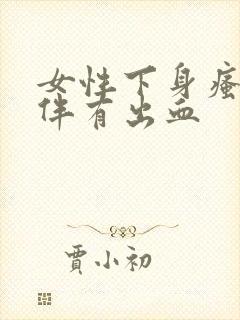 女性下身瘙
伴有出血
贾小初